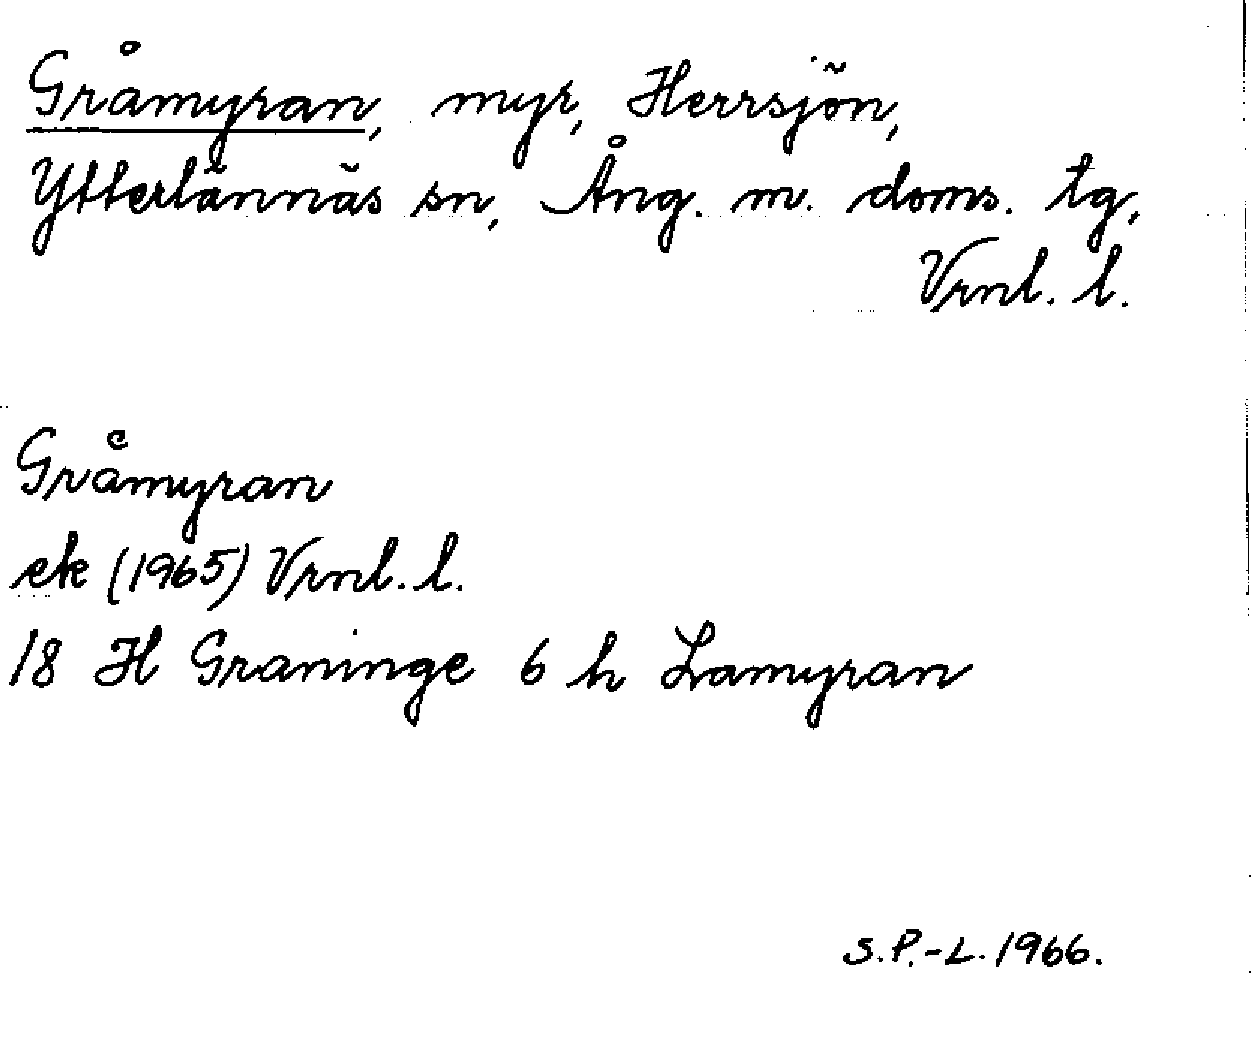 Gråmyran, myr, Herrsjön,
Ytterlännäs sn, Ång. m. doms. tg,
Vrnl. l.
Gråmyran
ek (1965) Vrnl. l.
18 H Graninge 6 h Lamyran
S.P.-L. 1966.